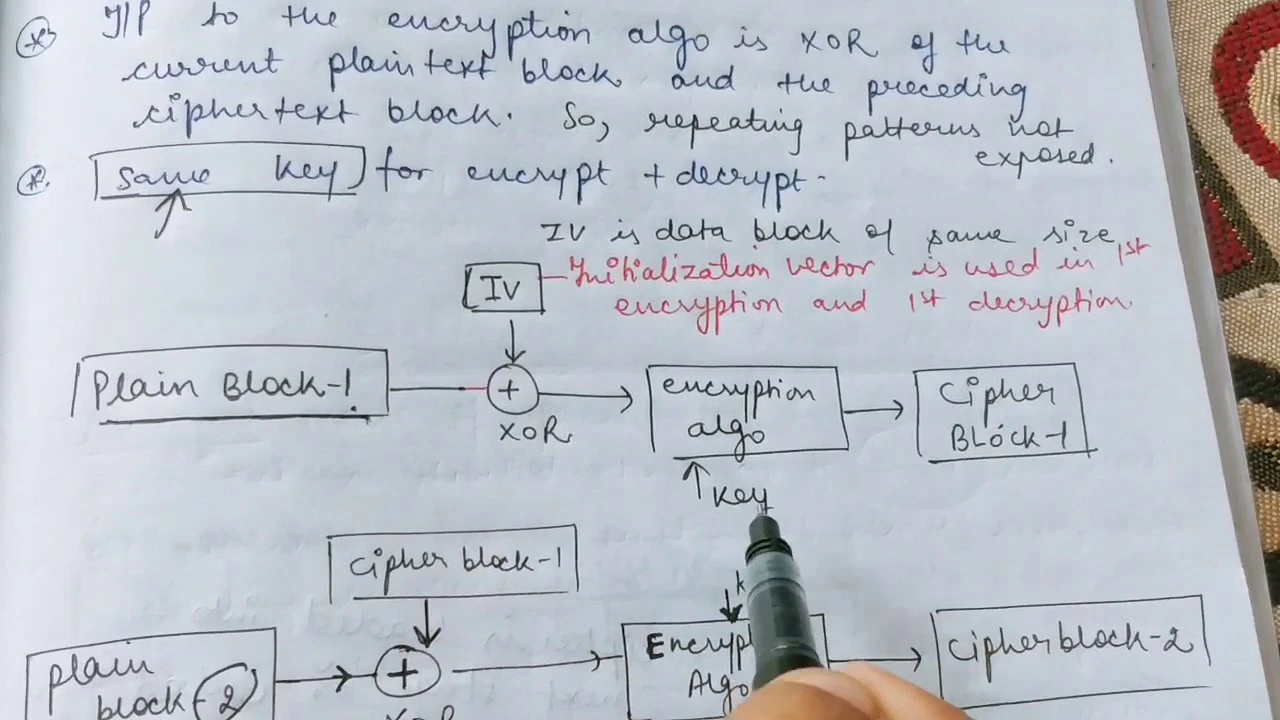 I/P to the encryption algo is XOR of the
current plaintext block and the preceding
ciphertext block. So, repeating patterns not
exposed.
Same Key for encrypt + decrypt.
IV is data block of same size
IV
Initialization vector is used in 1st
encryption and 1st decryption.
Plain Block-1
+
XOR
encryption
algo
Cipher
BLOCK-1
Key
Cipher block-1
k
plain
block-2
+
XOR
Encryp
Algo
Cipher block-2